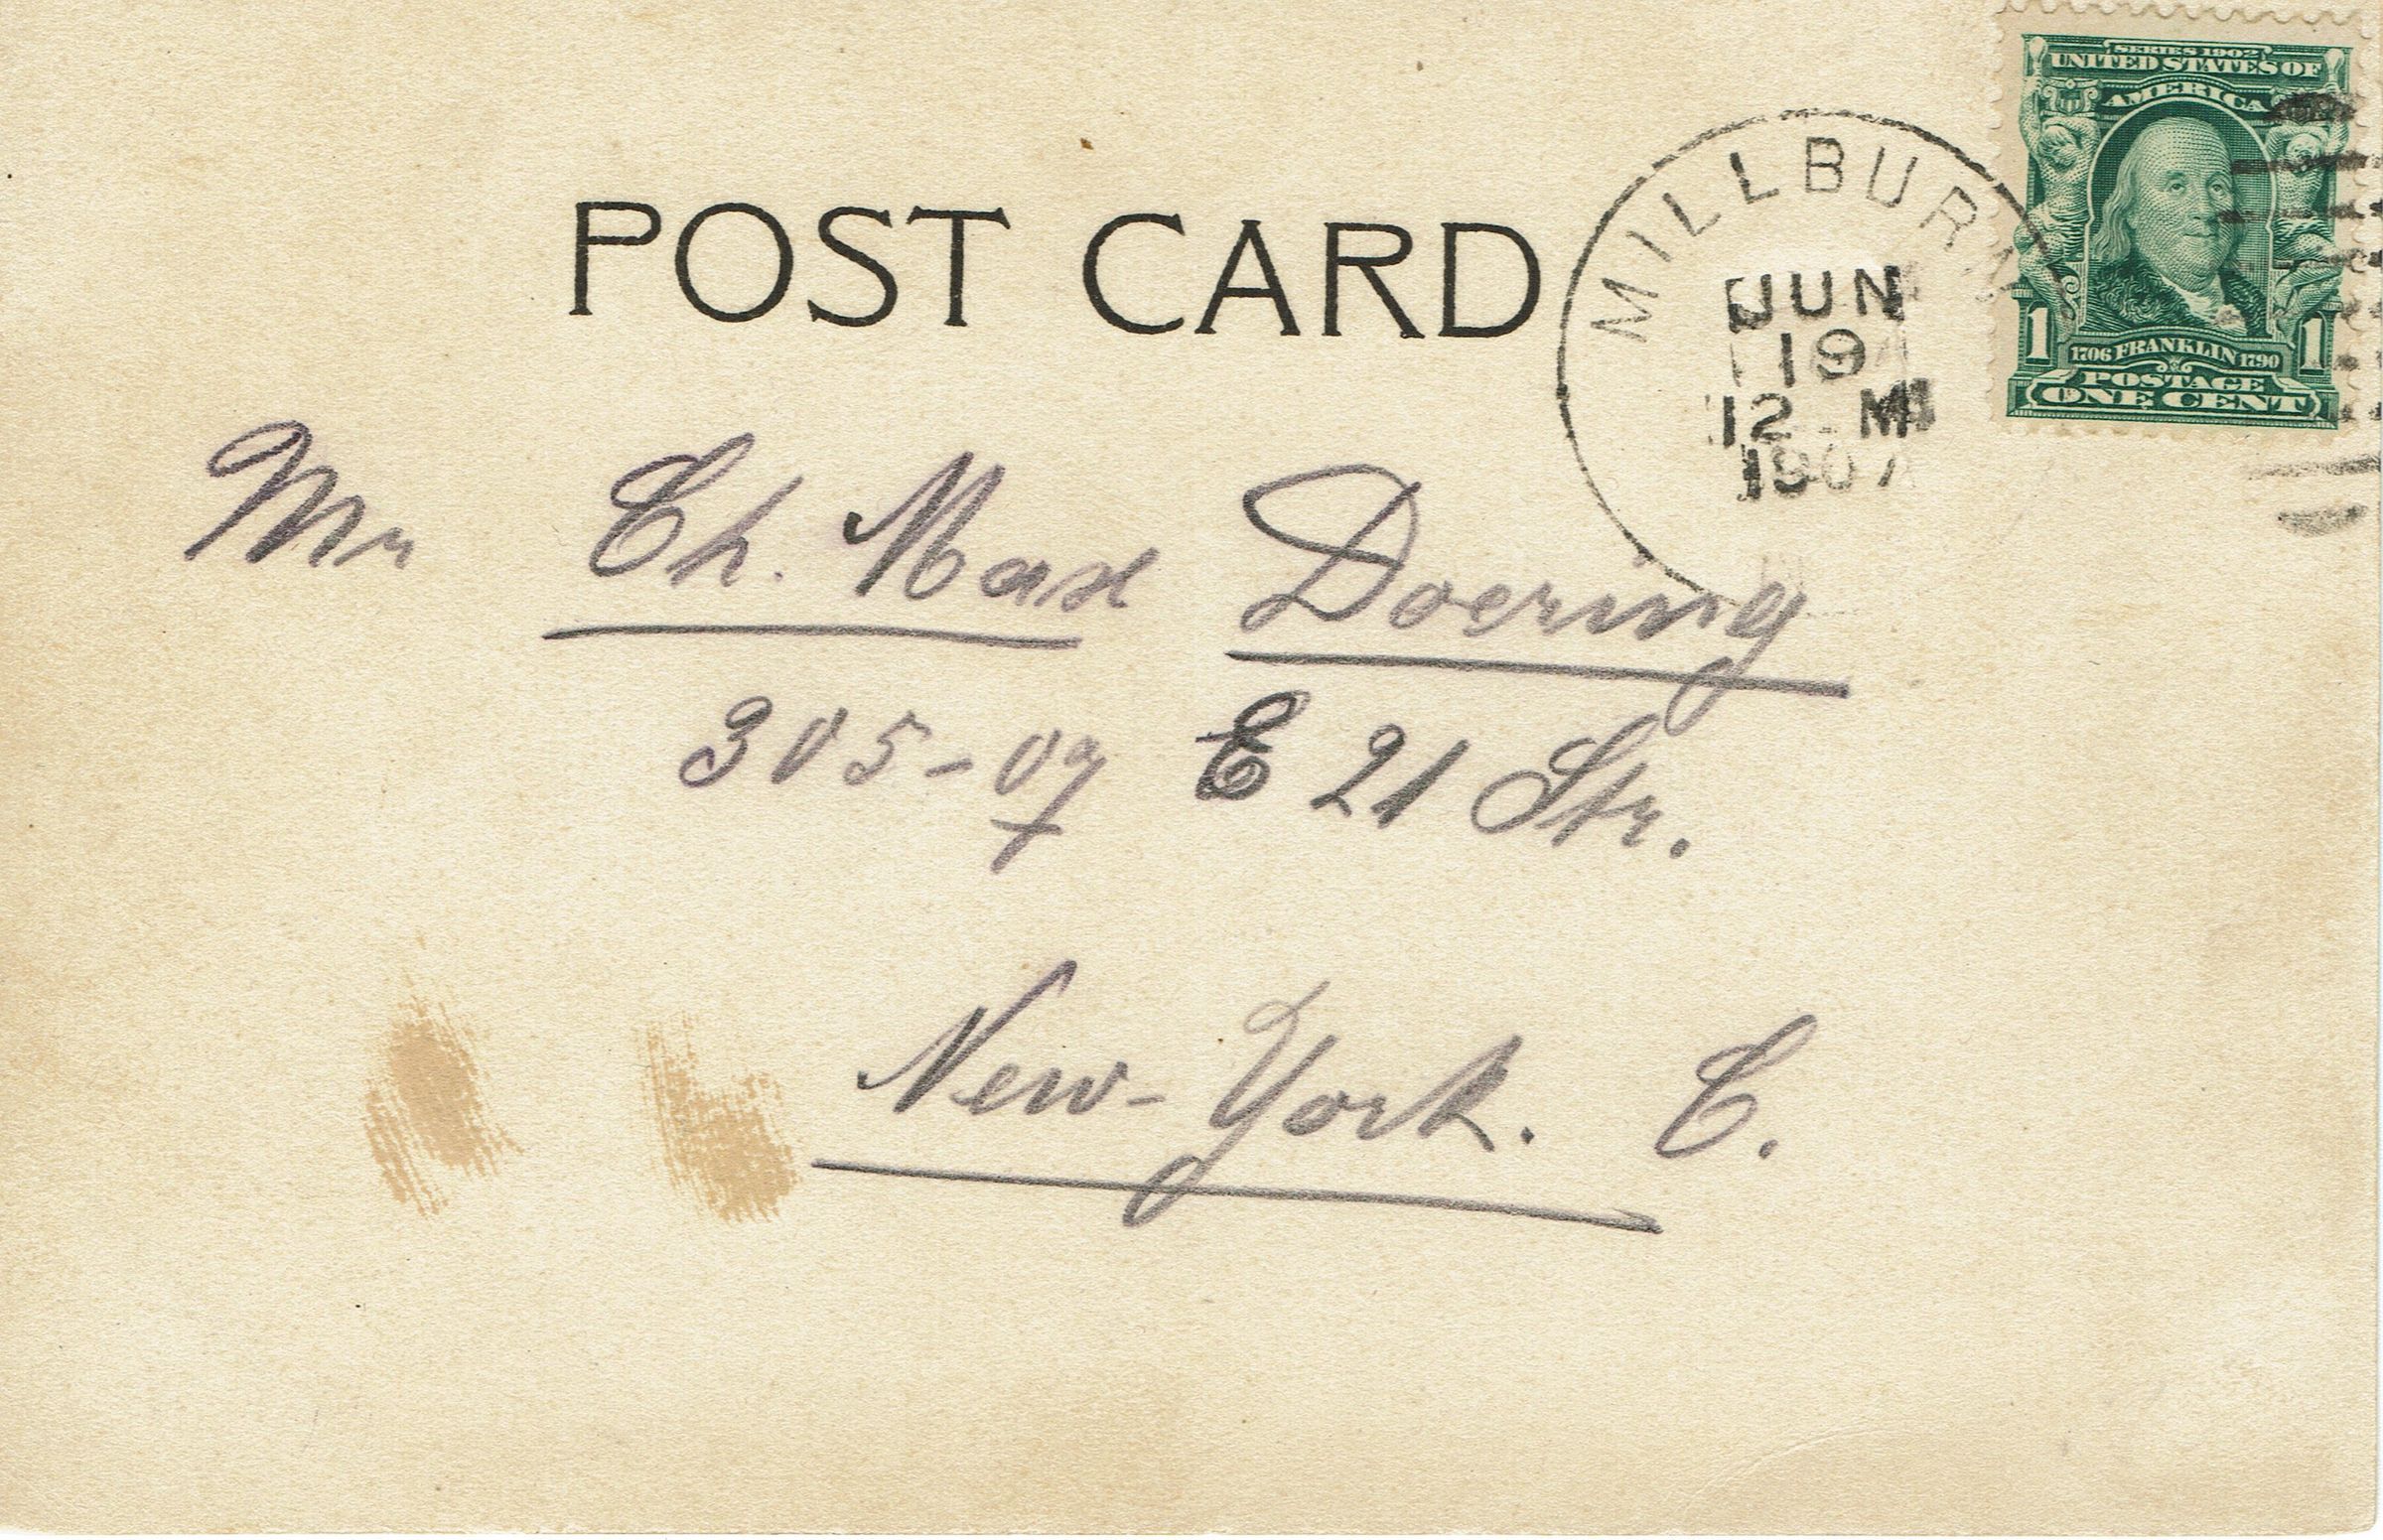 SERIES 1902
UNITED STATES OF
AMERICA
1 1706 FRANKLIN 1790 1
POSTAGE
ONE CENT
POST CARD
MILLBURN
JUN
19
12 M
1907
Mr Ch. Max Doering
305-07 E 21 Str.
New-York. C.